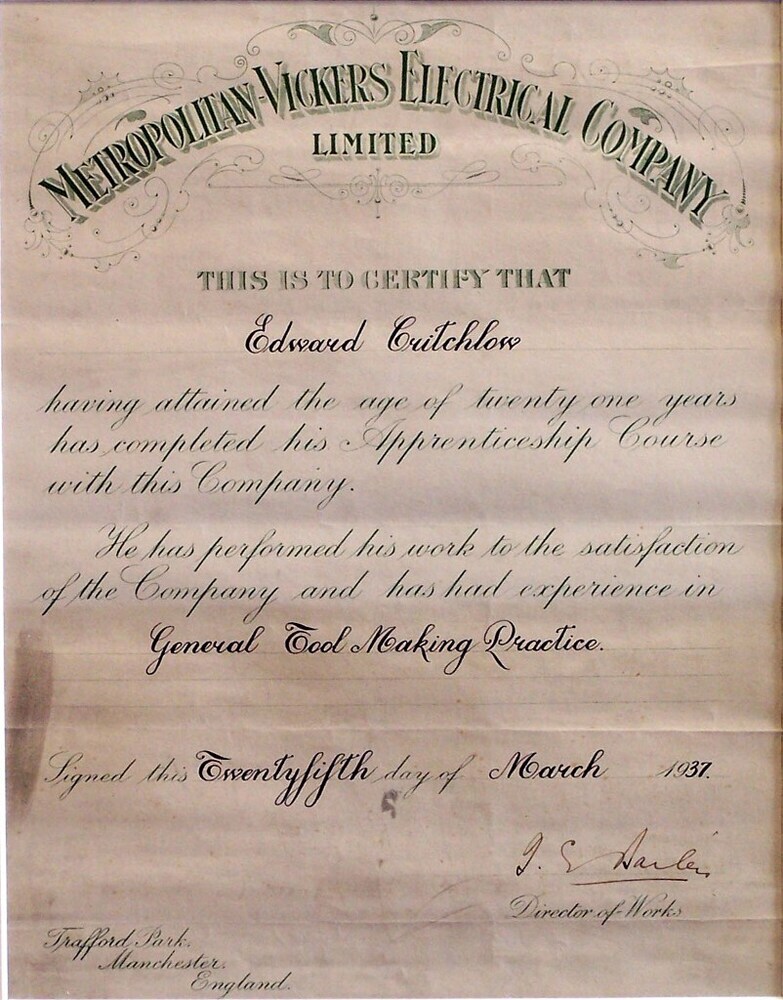 METROPOLITAN-VICKERS ELECTRICAL COMPANY
LIMITED
THIS IS TO CERTIFY THAT
Edward Critchlow
having attained the age of twenty one years
has completed his Apprenticeship Course
with this Company.
He has performed his work to the satisfaction
of the Company and has had experience in
General Tool Making Practice.
Signed this Twentyfifth day of March 1937.
Director of Works
Trafford Park.
Manchester.
England.